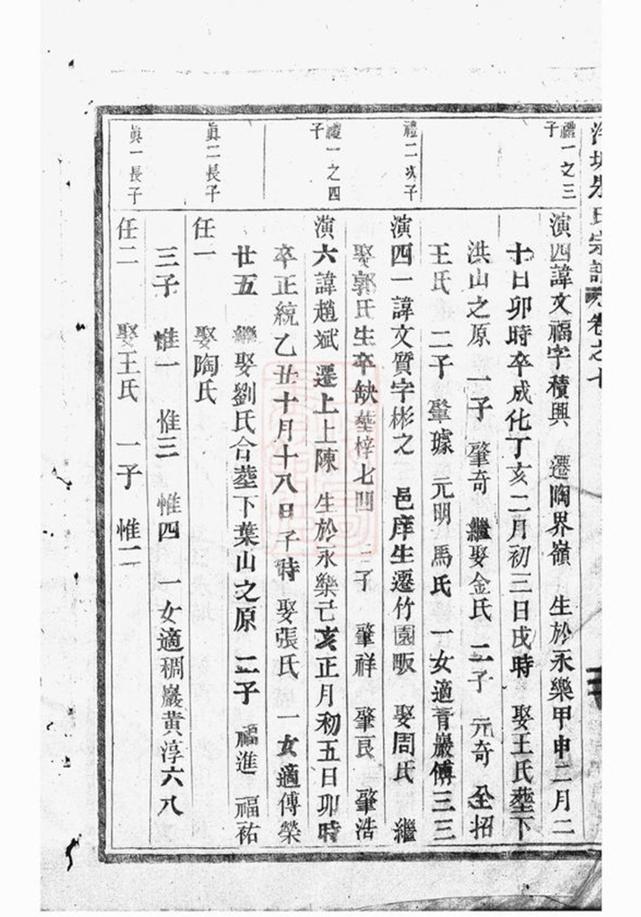 宗譜 卷之七
禮一之三子
演四諱文福字積興 遷陶界嶺 生於永樂甲申二月二
十日卯時卒成化丁亥二月初三日戌時 娶王氏塟下
洪山之原 一子 肇奇 繼娶金氏 二子 元奇 全招
王氏 二子 肇璩 元明 馬氏 一女適青巖傅三三
禮二次子
演四一諱文質字彬之 邑庠生遷竹園畈 娶周氏 繼
娶郭氏生卒缺塟梓七凹 二子 肇祥 肇良 肇浩
禮一之四子
演六諱趙斌 遷上上陳 生於永樂己亥正月初五日卯時
卒正統乙丑十月十八日子時 娶張氏 一女適傅榮
廿五 繼娶劉氏合塟下葉山之原 二子 福進 福祐
眞二長子
任一 娶陶氏
三子 惟一 惟三 惟四 一女適稠巖黃淳六八
眞一長子
任二 娶王氏 一子 惟二